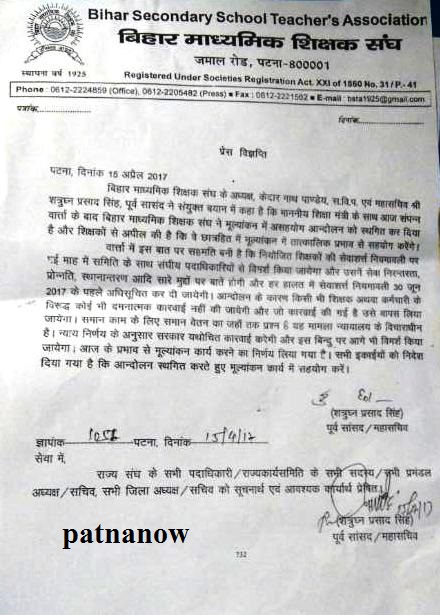 Bihar Secondary School Teacher's Association
बिहार माध्यमिक शिक्षक संघ
स्थापना वर्ष 1925
जमाल रोड, पटना-800001
Registered Under Societies Registration Act. XXI of 1860 No. 31/P.- 41
Phone : 0612-2224859 (Office), 0612-2205482 (Press) ■ Fax : 0612-2221502 ■ E-mail : bsta1925@gmail.com
पत्रांक
दिनांक
प्रेस विज्ञप्ति
पटना, दिनांक 15 अप्रैल 2017
बिहार माध्यमिक शिक्षक संघ के अध्यक्ष, केदार नाथ पाण्डेय, स.वि.प. एवं महासचिव श्री
शत्रुघ्न प्रसाद सिंह, पूर्व सासंद ने संयुक्त बयान में कहा है कि माननीय शिक्षा मंत्री के साथ आज संपन्न
वार्त्ता के बाद बिहार माध्यमिक शिक्षक संघ ने मूल्यांकन में असहयोग आन्दोलन को स्थगित कर दिया
है और शिक्षकों से अपील की है कि वे छात्रहित में मूल्यांकन में तात्कालिक प्रभाव से सहयोग करेंगे।
वार्त्ता में इस बात पर सहमति बनी है कि नियोजित शिक्षकों की सेवाशर्त्त नियमावली पर
मई माह में समिति के साथ संघीय पदाधिकारियों से विमर्श किया जायेगा और उनमें सेवा निरन्तरता,
प्रोन्नति, स्थानान्तरण आदि सारे मुद्दों पर बाते होगी और हर हालत में सेवाशर्त्त नियमावली 30 जून
2017 के पहले अधिसूचित कर दी जायेगी। आन्दोलन के कारण किसी भी शिक्षक अथवा कर्मचारी के
विरुद्ध कोई भी दमनात्मक कारवाई नहीं की जायेगी और जो कारवाई की गई है उसे वापस लिया
जायेगा। समान काम के लिए समान वेतन का जहाँ तक प्रश्न है यह मामला न्यायालय के विचाराधीन
है। न्याय निर्णय के अनुसार सरकार यथोचित कारवाई करेगी और इस बिन्दु पर आगे भी विमर्श किया
जायेगा। आज के प्रभाव से मूल्यांकन कार्य करने का निर्णय लिया गया है। सभी इकाईयों को निदेश
दिया गया है कि आन्दोलन स्थगित करते हुए मूल्यांकन कार्य में सहयोग करें।
(शत्रुघ्न प्रसाद सिंह)
पूर्व सांसद/महासचिव
ज्ञापांक पटना, दिनांक 15/4/17
सेवा में,
राज्य संघ के सभी पदाधिकारी/राज्यकार्यसमिति के सभी सदस्य/सभी प्रमंडल
अध्यक्ष/सचिव, सभी जिला अध्यक्ष/सचिव को सूचनार्थ एवं आवश्यक कार्यार्थ प्रेषित।
(शत्रुघ्न प्रसाद सिंह)
पूर्व सांसद/महासचिव
patnanow
732